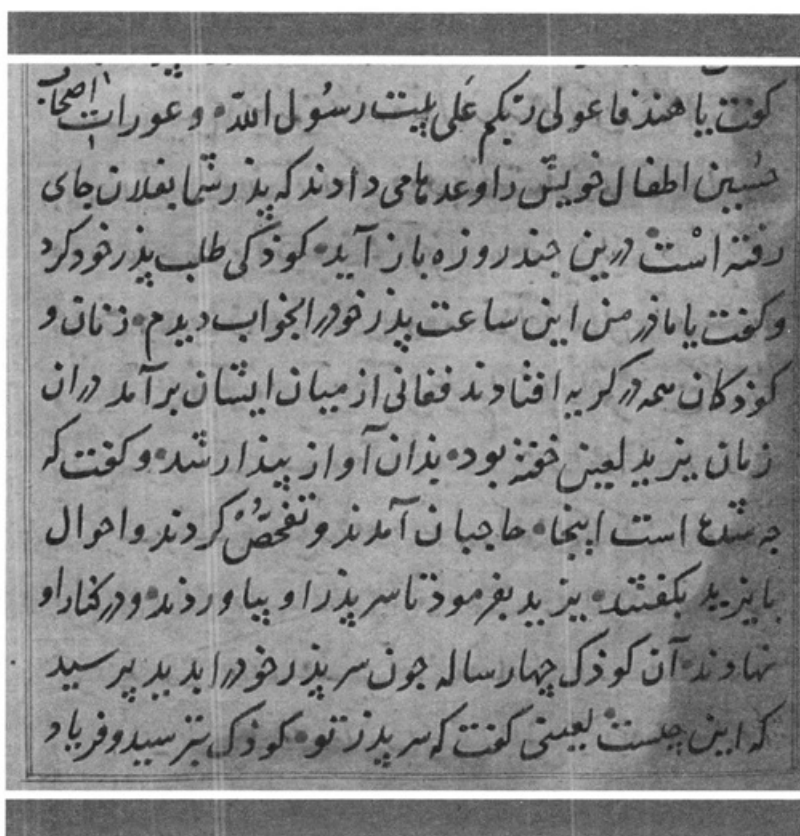 کفت یا هند فاعولی ربکم علی بیت رسول الله و عورات اصحاب
حسین اطفال خویش را وعدها می دادند که پذر شما بفلان جای
رفته است درین جند روزه باز آید کوذکی طلب پذر خود کرد
و کفت یا ماذر من این ساعت پذر خودرا بخواب دیدم زنان و
کوذکان همه در کریه افتادند فغانی از میان ایشان برآمد دران
زمان یزید لعین خفته بود بذان آواز بیذار شد و کفت که
جه شدع است اینجا حاجبان آمدند و تفحص کردند و احوال
با یزید بکفتند یزید بفرموذ تا سر پذر او بیاوردند و در کنار او
نهادند آن کوذک چهار ساله جون سر پذر خودرا بدید پرسید
که این چیست لعینی کفت که سر پدر تو کوذک بترسید و فریاد